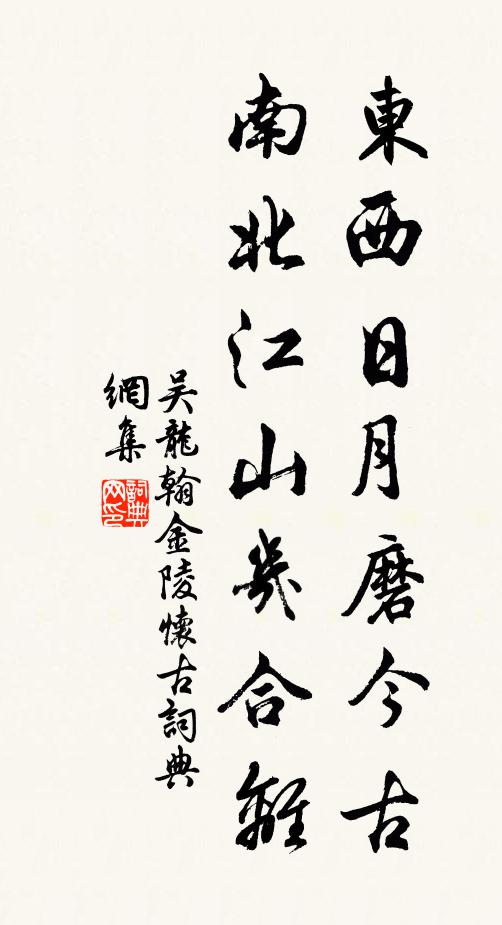 東西日月磨今古
南北江山幾合離
吴龍翰金陵懷古詞典
網集
詞典網印